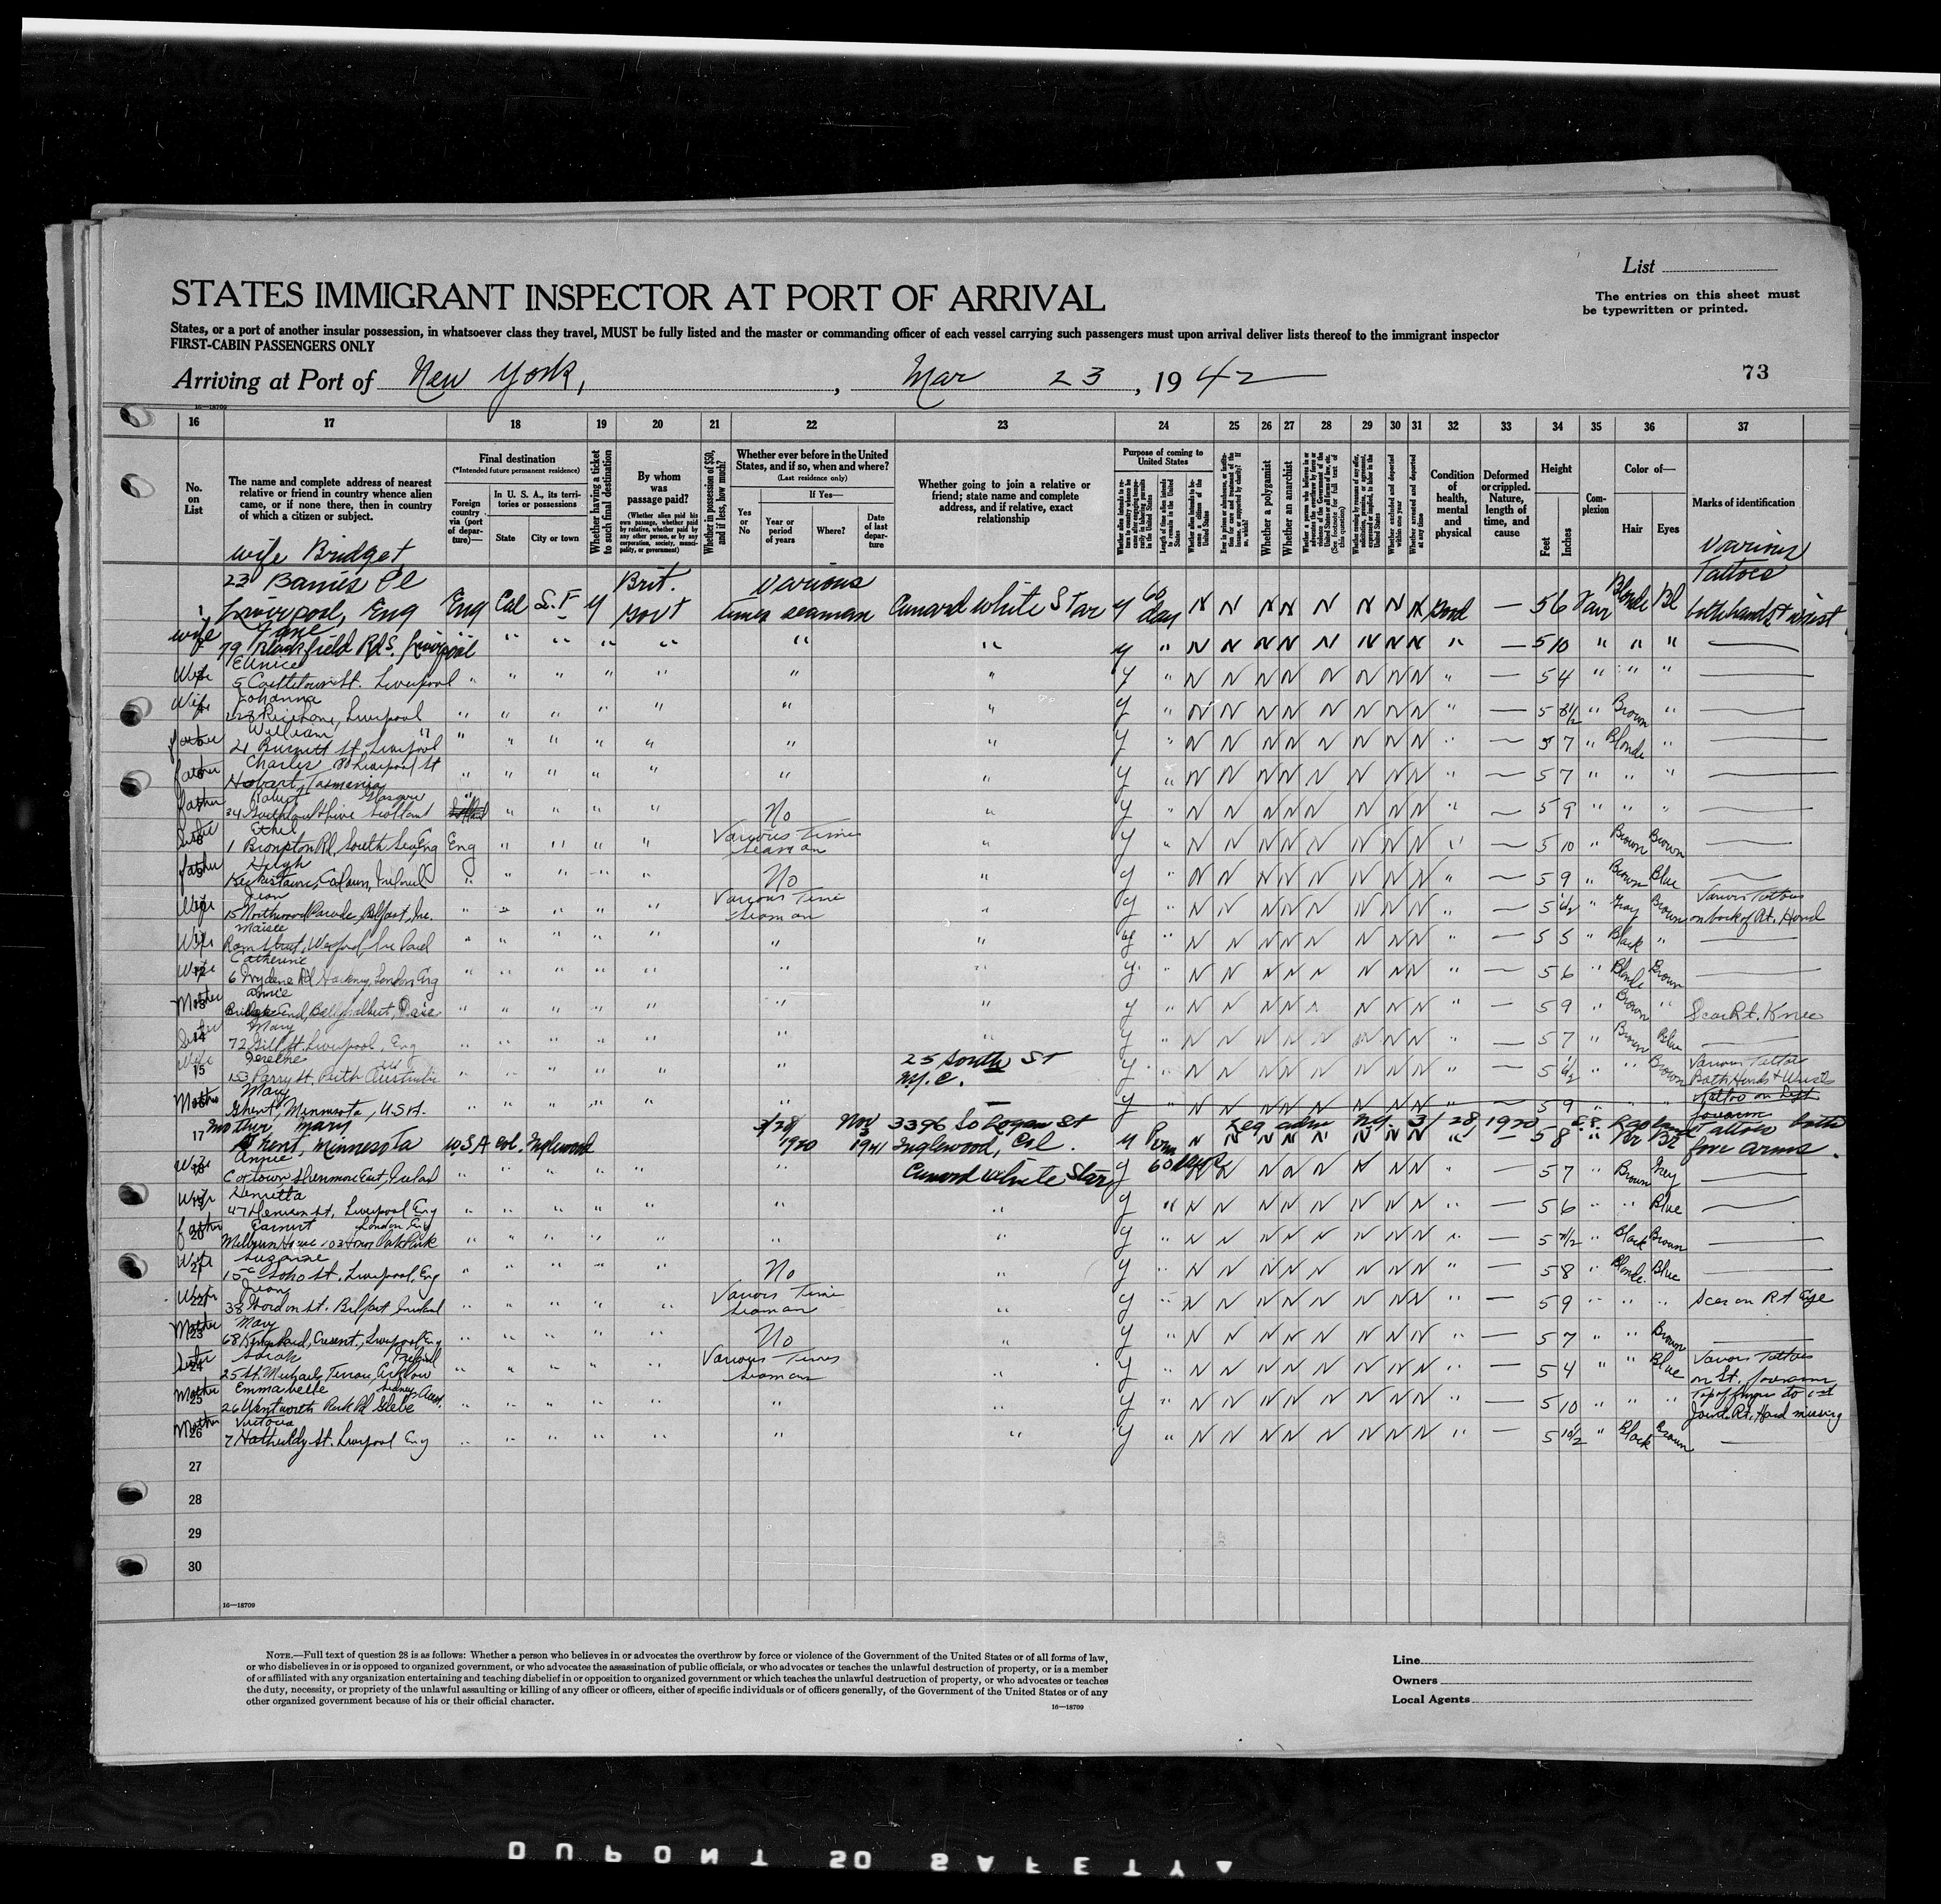 List
The entries on this sheet must
be typewritten or printed.
STATES IMMIGRANT INSPECTOR AT PORT OF ARRIVAL
States, or a port of another insular possession, in whatsoever class they travel, MUST be fully listed and the master or commanding officer of each vessel carrying such passengers must upon arrival deliver lists thereof to the immigrant inspector
FIRST-CABIN PASSENGERS ONLY
Arriving at Port of New York, , Mar 23, 1942
73
16—18709
16 17 18 19 20 21 22 23 24 25 26 27 28 29 30 31 32 33 34 35 36 37
No. on List
The name and complete address of nearest relative or friend in country whence alien came, or if none there, then in country of which a citizen or subject.
Final destination
(*Intended future permanent residence)
Foreign country via (port of departure)—
In U. S. A., its territories or possessions
State
City or town
Whether having a ticket to such final destination
By whom was passage paid?
(Whether alien paid his own passage, whether paid by relative, whether paid by any other person, or by any corporation, society, municipality, or government)
Whether in possession of $50, and if less, how much?
Whether ever before in the United States, and if so, when and where?
(Last residence only)
If Yes—
Yes or No
Year or period of years
Where?
Date of last departure
Whether going to join a relative or friend; state name and complete address, and if relative, exact relationship
Purpose of coming to United States
Whether a polygamist
Whether an anarchist
Whether excluded and deported within one year
Whether arrested and deported at any time
Condition of health, mental and physical
Deformed or crippled. Nature, length of time, and cause
Height
Feet
Inches
Complexion
Color of—
Hair
Eyes
Marks of identification
wife Bridget, Various
23 Barnes Pl Brit. various Tattoes
1 Liverpool, Eng Eng Cal S.F y Govt times seaman Cunard White Star y 60 day N N N N N N N N Good — 5 6 Fair Blonde Bl both hands & wrist
wife Jane
79 Blackfield Rd S. Liverpool " " " " " " " y " N N N N N N N N " — 5 10 " " " —
Wife Eunice
5 Castletown St. Liverpool " " " " " " " y " N N N N N N N N " — 5 4 " " " —
Wife Johanna
Liverpool " " " " " " " y " N N N N N N N N " — 5 8½ " Brown " —
father William
21 Burnett St. Liverpool " " " " " " " y " N N N N N N N N " — 5 7 " Blonde " —
father Charles 80 Liverpool St
Hobart, Tasmania " " " " " " " y " N N N N N N N N " — 5 7 " " " —
father Robert Glasgow
34 Drive Scotland " " " " No " y " N N N N N N N N " — 5 9 " " " —
Ethel
1 Brompton Rd, South Sea, Eng Eng " " " " Various Times Seaman " y " N N N N N N N N " — 5 10 " Brown Brown —
father Hugh
" " " " " No " y " N N N N N N N N " — 5 9 " Brown Blue —
Wife Jean
15 Northwood Parade, Belfast, Ire. " " " " " Various Time Seaman " y " N N N N N N N N " — 5 6½ " Gray Brown Various Tattoos on back of Rt. Hand
Wife Maisee
Ram Street, Wexford, Ireland " " " " " " " y " N N N N N N N N " — 5 5 " Black " —
Wife 12 Catherine
Rd Hackney, London Eng " " " " " " " y " N N N N N N N N " — 5 6 " Blonde Brown —
Mother Annie
" " " " " " " y " N N N N N N N N " — 5 9 " Brown " Scar Rt. Knee
14 Mary
72 Gill St. Liverpool, Eng " " " " " " " y " N N N N N N N N " — 5 7 " Brown Blue —
Wife 15
153 Parry St, Perth Australia " " " " " " 25 South St N.Y.C. y " N N N N N N N N " — 5 6½ " " Brown Various Tattoos Both Hands & Wrists
Mother Mary
Ghent, Minnesota, U.S.A. " " " " " " — y " N N N N N N N N " — 5 9 " " " Tattoo on Left forearm
17 Mother Mary 3/28 Nov 3396 So Logan St Leg adm N.Y. 3/28/1920 S.S. Lapland Tattoo both
Ghent, Minnesota USA Col. Inglewood 1920 1941 Inglewood, Cal. y Perm N N N N N N N N " — 5 8 " Br Br fore arms.
Wife Annie
" " " " " " Cunard White Star y 60 days N N N N N N N " — 5 7 " Brown Gray —
Wife Henrietta
47 Denison St, Liverpool Eng " " " " " " " y " N N N N N N N N " — 5 6 " " Blue —
father 20 Earnest London Eng
Oak Park " " " " " " " y " N N N N N N N N " — 5 7½ " Black Brown —
Wife 21 Suzanne
15c Soho St. Liverpool, Eng " " " " " No " y " N N N N N N N N " — 5 8 " Blonde Blue —
22 Jean
38 Gordon St. Belfast Ireland " " " " " Various Time Seaman " y " N N N N N N N N " — 5 9 " " " Scar on Rt Eye
Mother 23 Mary
68 Cresent, Liverpool Eng " " " " " No " y " N N N N N N N N " — 5 7 " " Brown —
Sister 24 Sarah Ireland
25 St. Michaels Terrace, Arklow " " " " " Various Times Seaman " y " N N N N N N N N " — 5 4 " " Blue Various Tattoos on Lt. forearm
Mother 25 Emmabelle Sidney Aust.
26 Wentworth Park Rd Glebe " " " " " " " y " N N N N N N N N " — 5 10 " " " Top of finger to 1st Joint Rt. Hand missing
Mother 26 Victoria
St. Liverpool Eng " " " " " " " y " N N N N N N N N " — 5 10½ " Black Brown —
27
28
29
30
16—18709
NOTE.—Full text of question 28 is as follows: Whether a person who believes in or advocates the overthrow by force or violence of the Government of the United States or of all forms of law,
or who disbelieves in or is opposed to organized government, or who advocates the assassination of public officials, or who advocates or teaches the unlawful destruction of property, or is a member
of or affiliated with any organization entertaining and teaching disbelief in or opposition to organized government or which teaches the unlawful destruction of property, or who advocates or teaches
the duty, necessity, or propriety of the unlawful assaulting or killing of any officer or officers, either of specific individuals or of officers generally, of the Government of the United States or of any
other organized government because of his or their official character.
16—18709
Line
Owners
Local Agents
DUPONT 50 SAFETY